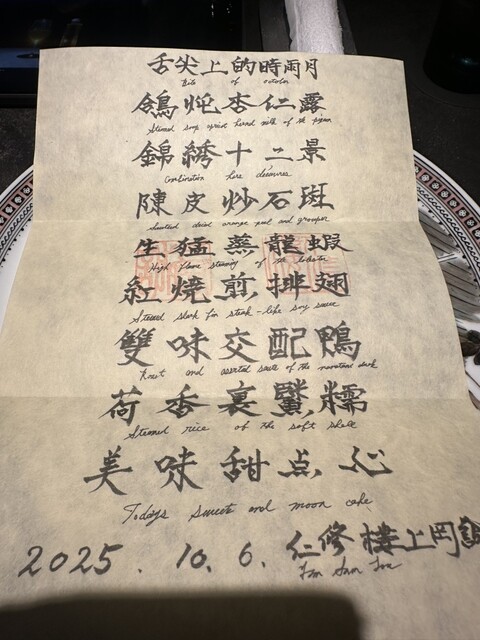 舌尖上的時雨月
Bite of october
鴿炖杏仁露
Steamed soup apricot kernel milk of the pigeon
錦綉十二景
Combination hors d'oeuvres
陳皮炒石斑
Sauteed dried orange peel and grouper
生猛蒸龍蝦
High flame steaming of the lobster
紅燒煎排翅
Stewed shark fin steak-like soy sauce
雙味交配鴨
Roast and assorted saute of the duck
荷香裏蟹糯
Steamed rice of the soft shell
美味甜点心
Todays sweets and moon cake
2025.10.6. 仁修樓上岡